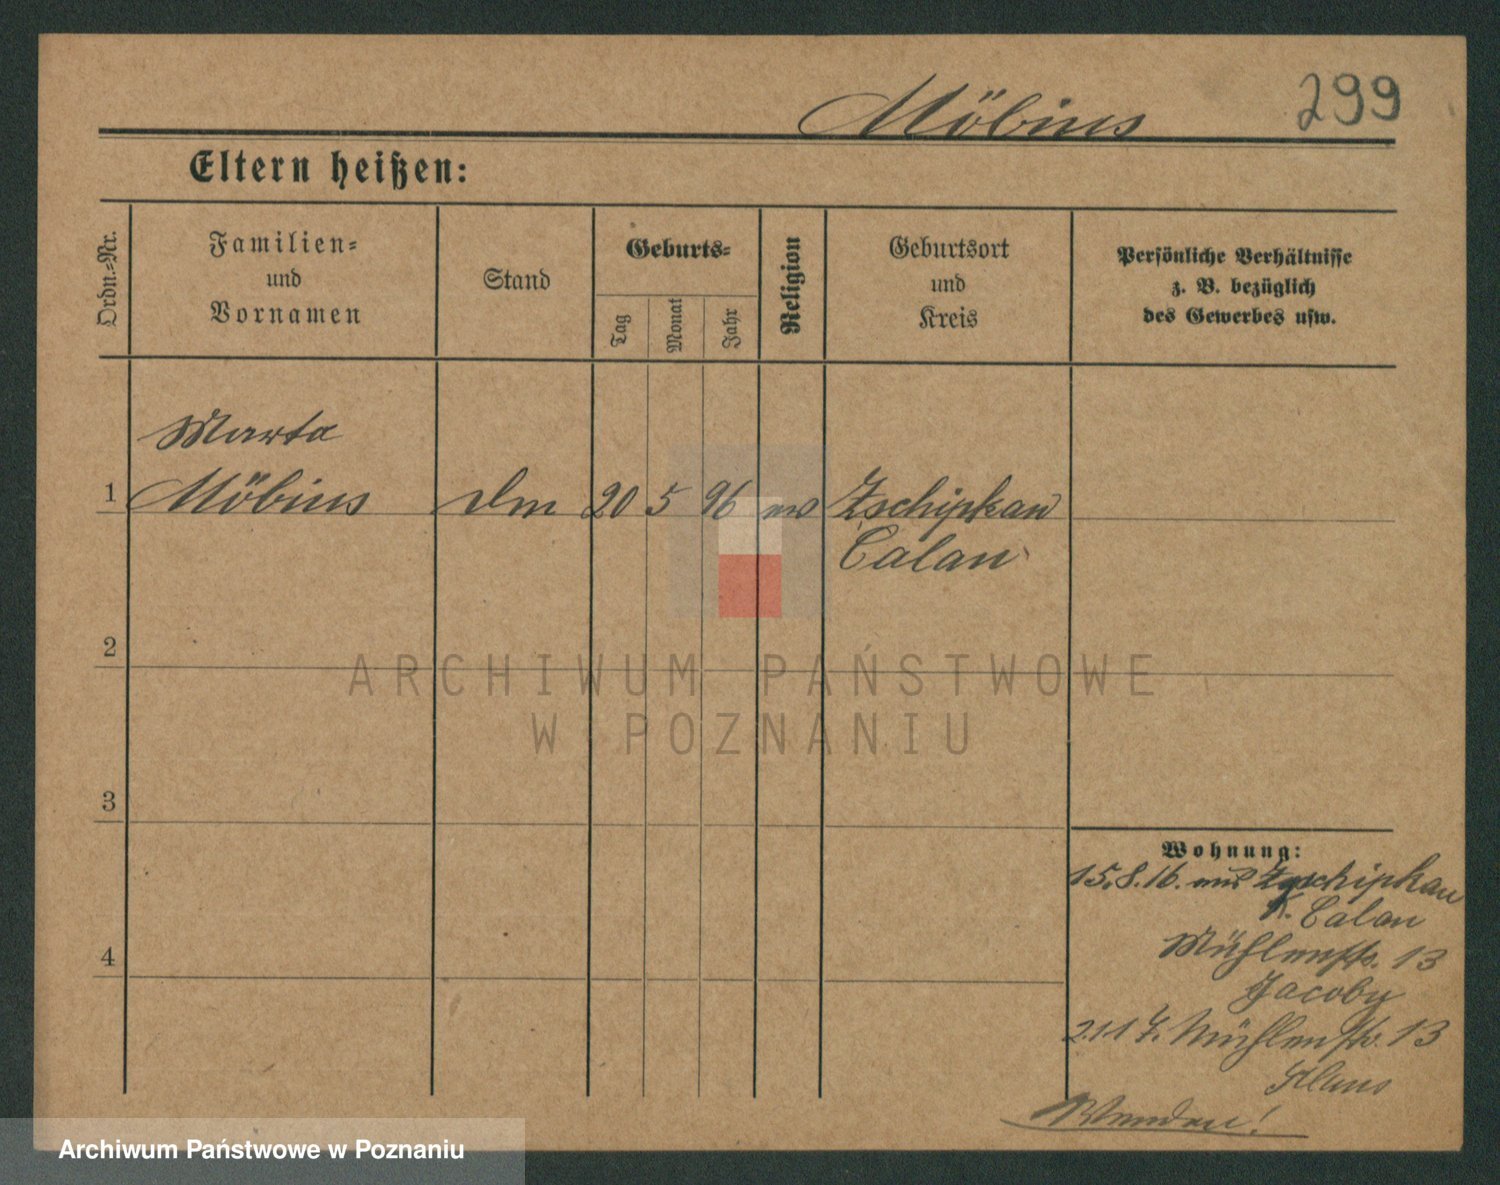 Möbius 299
Eltern heißen:
Ordn.=Nr.
Familien=
und
Vornamen
Stand
Geburts=
Tag
Monat
Jahr
Religion
Geburtsort
und
Kreis
Persönliche Verhältnisse
z. B. bezüglich
des Gewerbes usw.
Marta
1 Möbius 20 5 96 ev Zschipkau
Calau
2
3
4
Wohnung:
15.8.16. aus Zschipkau
K. Calau
Mühlenstr. 13
Jacoby
2.1.17. Mühlenstr. 13
Wenden!
ARCHIWUM PAŃSTWOWE
W POZNANIU
Archiwum Państwowe w Poznaniu